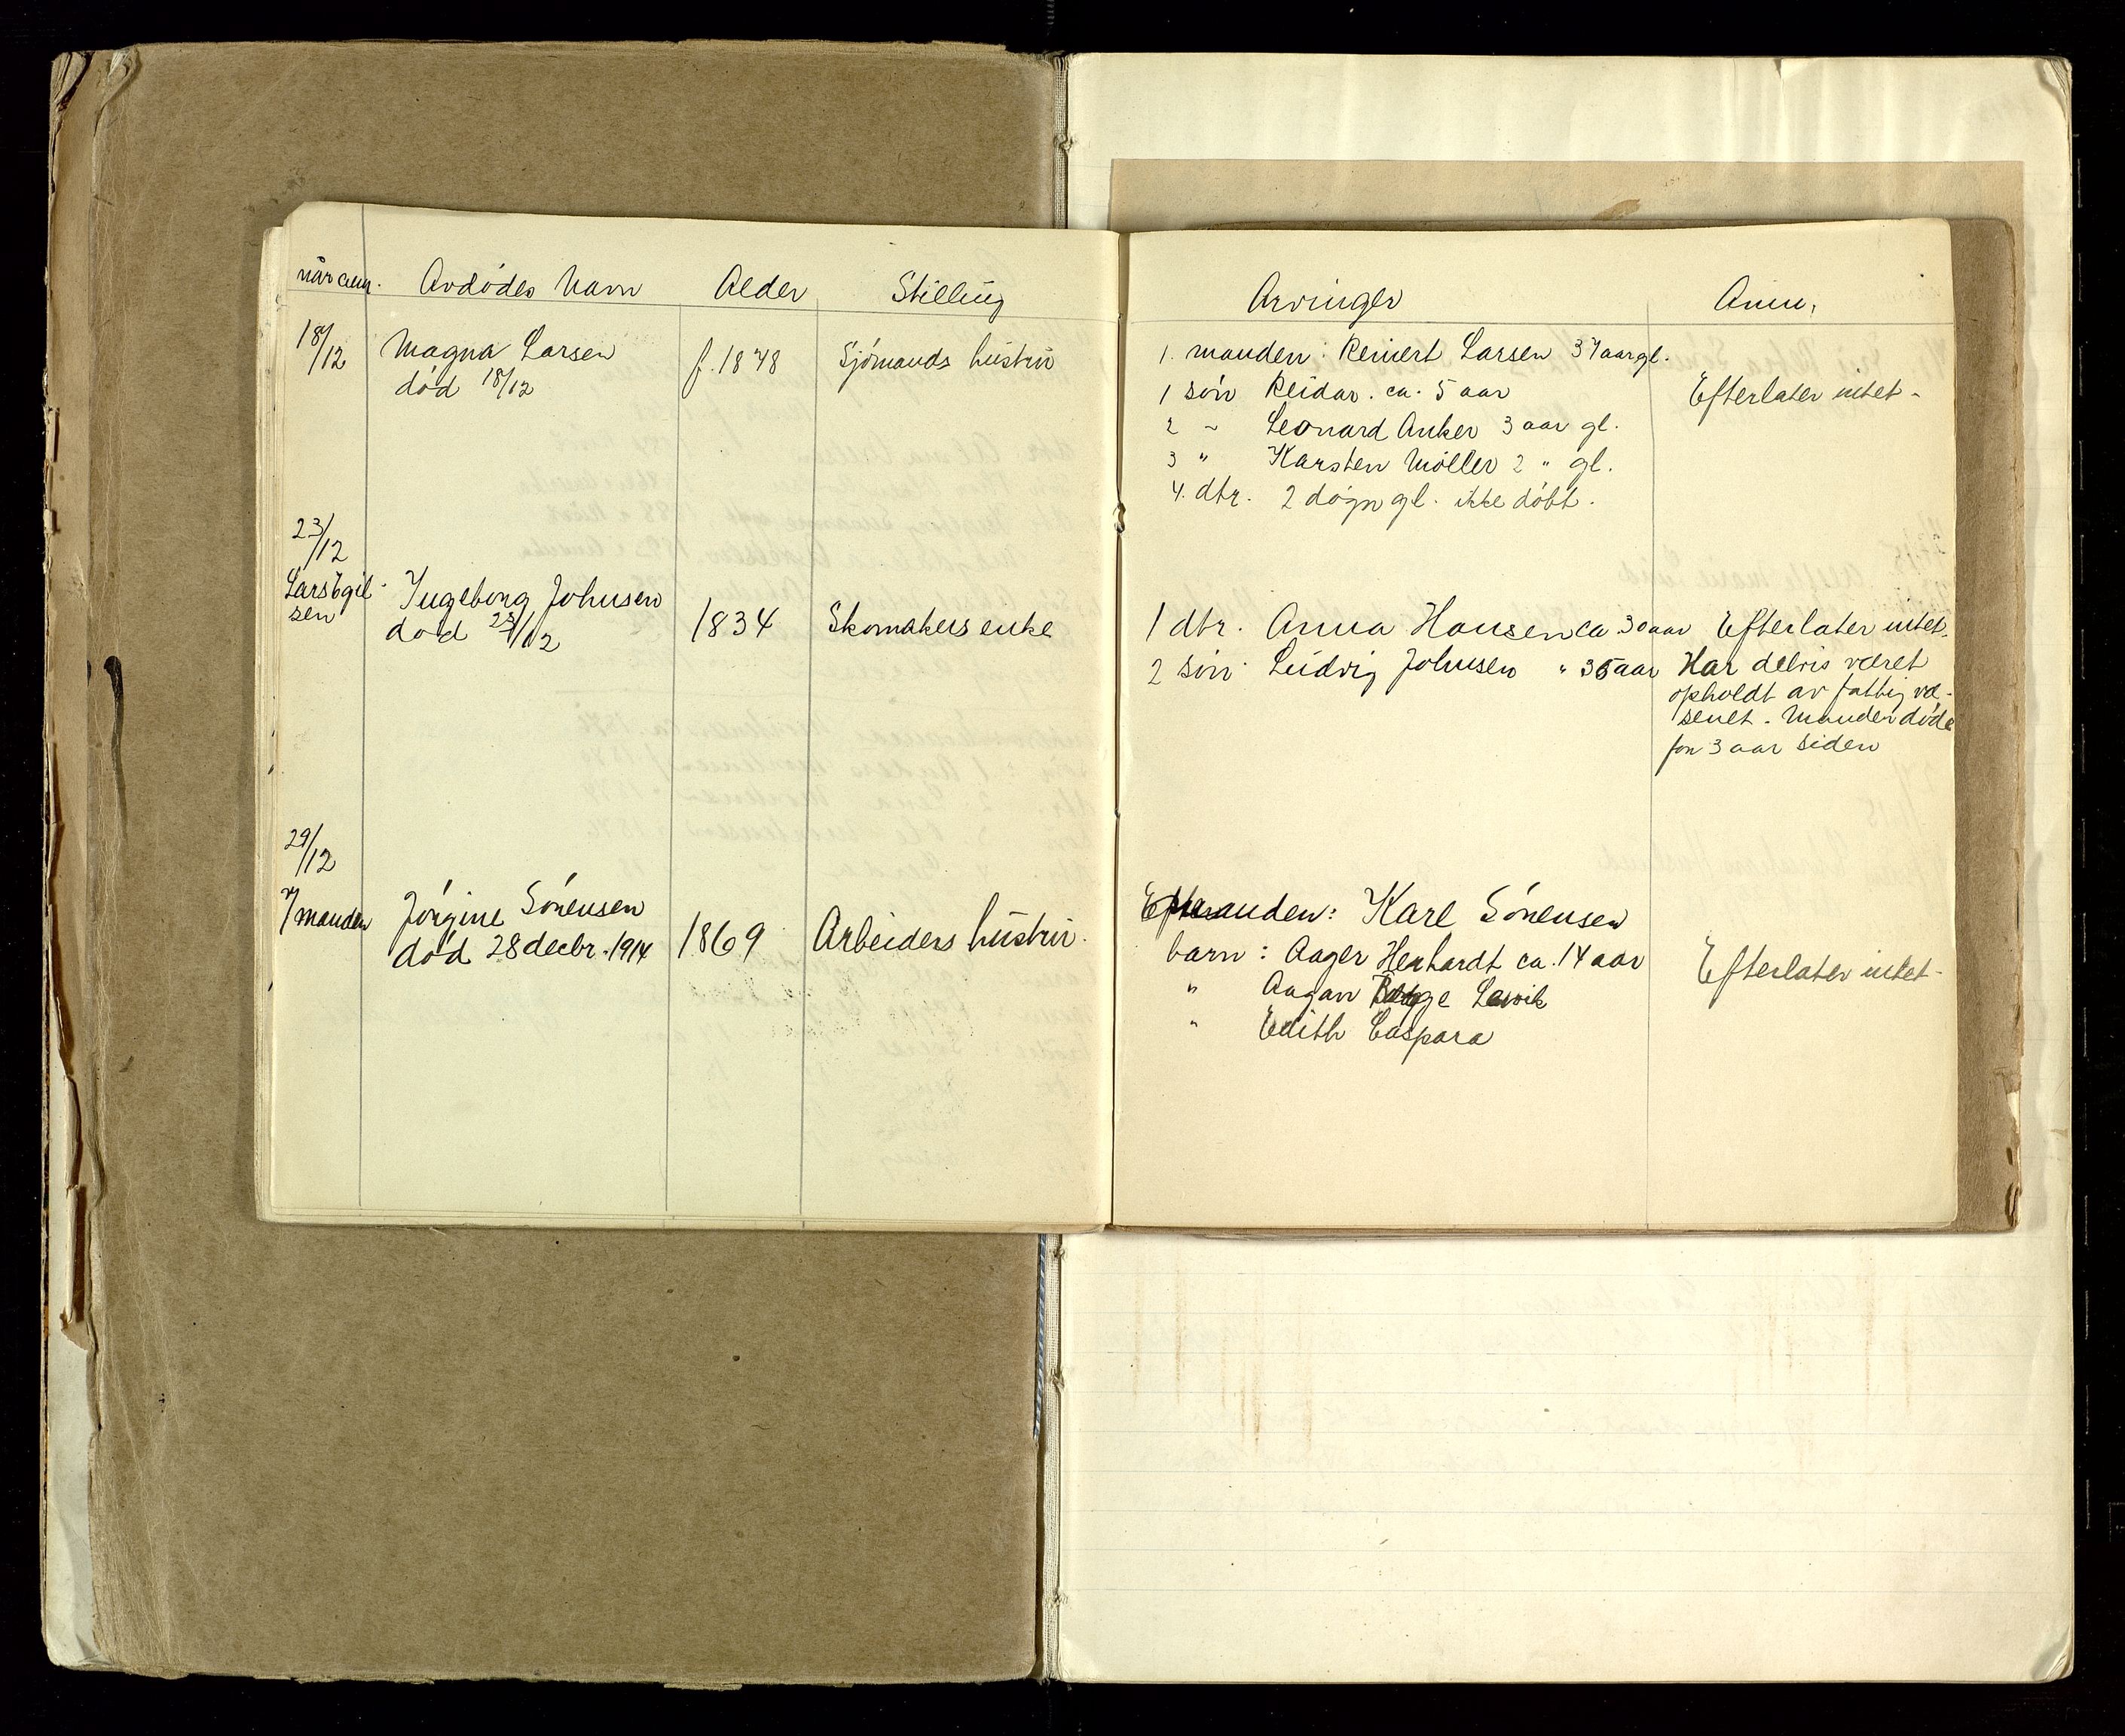 når anm. Avdødes Navn Alder Stilling Arvinger Anm.
18/12 Magna Larsen f. 1848 Sjømands hustru
død 18/12
1. manden: Reinert Larsen 37 aar gl.
1 søn Reidar. ca. 5 aar Efterlater intet -
2 - Leonard Anker 3 aar gl.
3 " Karsten Møller 2 " gl.
4. dtr. 2 døgn gl. ikke døbt.
23/12
Lars Egil-
sen
Ingeborg Johnsen
død 23/12 1834 Skomakers enke
1 dtr. Anna Hansen ca 30 aar Efterlater intet.
2 søn Ludvig Johnsen " 35 aar Har delvis været
opholdt av fattigvæ-
senet. Manden døde
for 3 aar siden
29/12
v/manden Jørgine Sørensen
død 28 decbr. 1914 1869 Arbeiders hustru.
manden: Karl Sørensen
barn: Aager Herhardt ca. 14 aar Efterlater intet -
" Aagan
" Edith Caspara